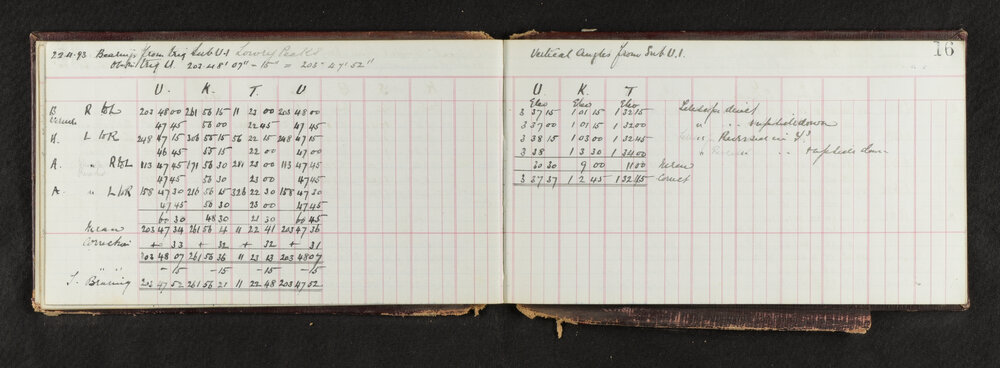 22.11.93 Bearings from Trig Sub U.1 Lowry Peaks
Trig U. 203° 48' 07" - 15" = 203° 47' 52"
U. K. T. U
R to L 203 48 00 261 56 15 11 23 00 203 48 00
47 45 56 00 22 45 47 45
L to R 248 47 15 306 55 15 56 22 15 248 47 15
46 45 55 15 22 00 47 00
A. " R to L 113 47 45 171 56 30 281 23 00 113 47 45
47 45 56 30 23 00 47 45
A. " L to R 158 47 30 216 56 15 326 22 30 158 47 30
47 45 56 30 23 00 47 45
60 30 48 30 21 30 60 45
Mean 203 47 34 261 56 4 11 22 41 203 47 36
Correction + 33 + 32 + 32 + 31
203 48 07 261 56 36 11 23 13 203 48 07
" " - 15 - 15 - 15 - 15
T. Bearing 203 47 52 261 56 21 11 22 48 203 47 52
Vertical Angles from Sub U.1. 16
U K. T
Elev Elev Elev
3 37 15 1 01 15 1 32 15 Telescope direct
3 37 00 1 01 15 1 32 00 " " upside down
3 38 15 1 03 00 1 32 45 Reversed in Ys
3 38 1 3 30 1 34 00 " " upside down
30 30 9 00 11 00 Mean
3 37 37 1 2 45 1 32 45 Correct